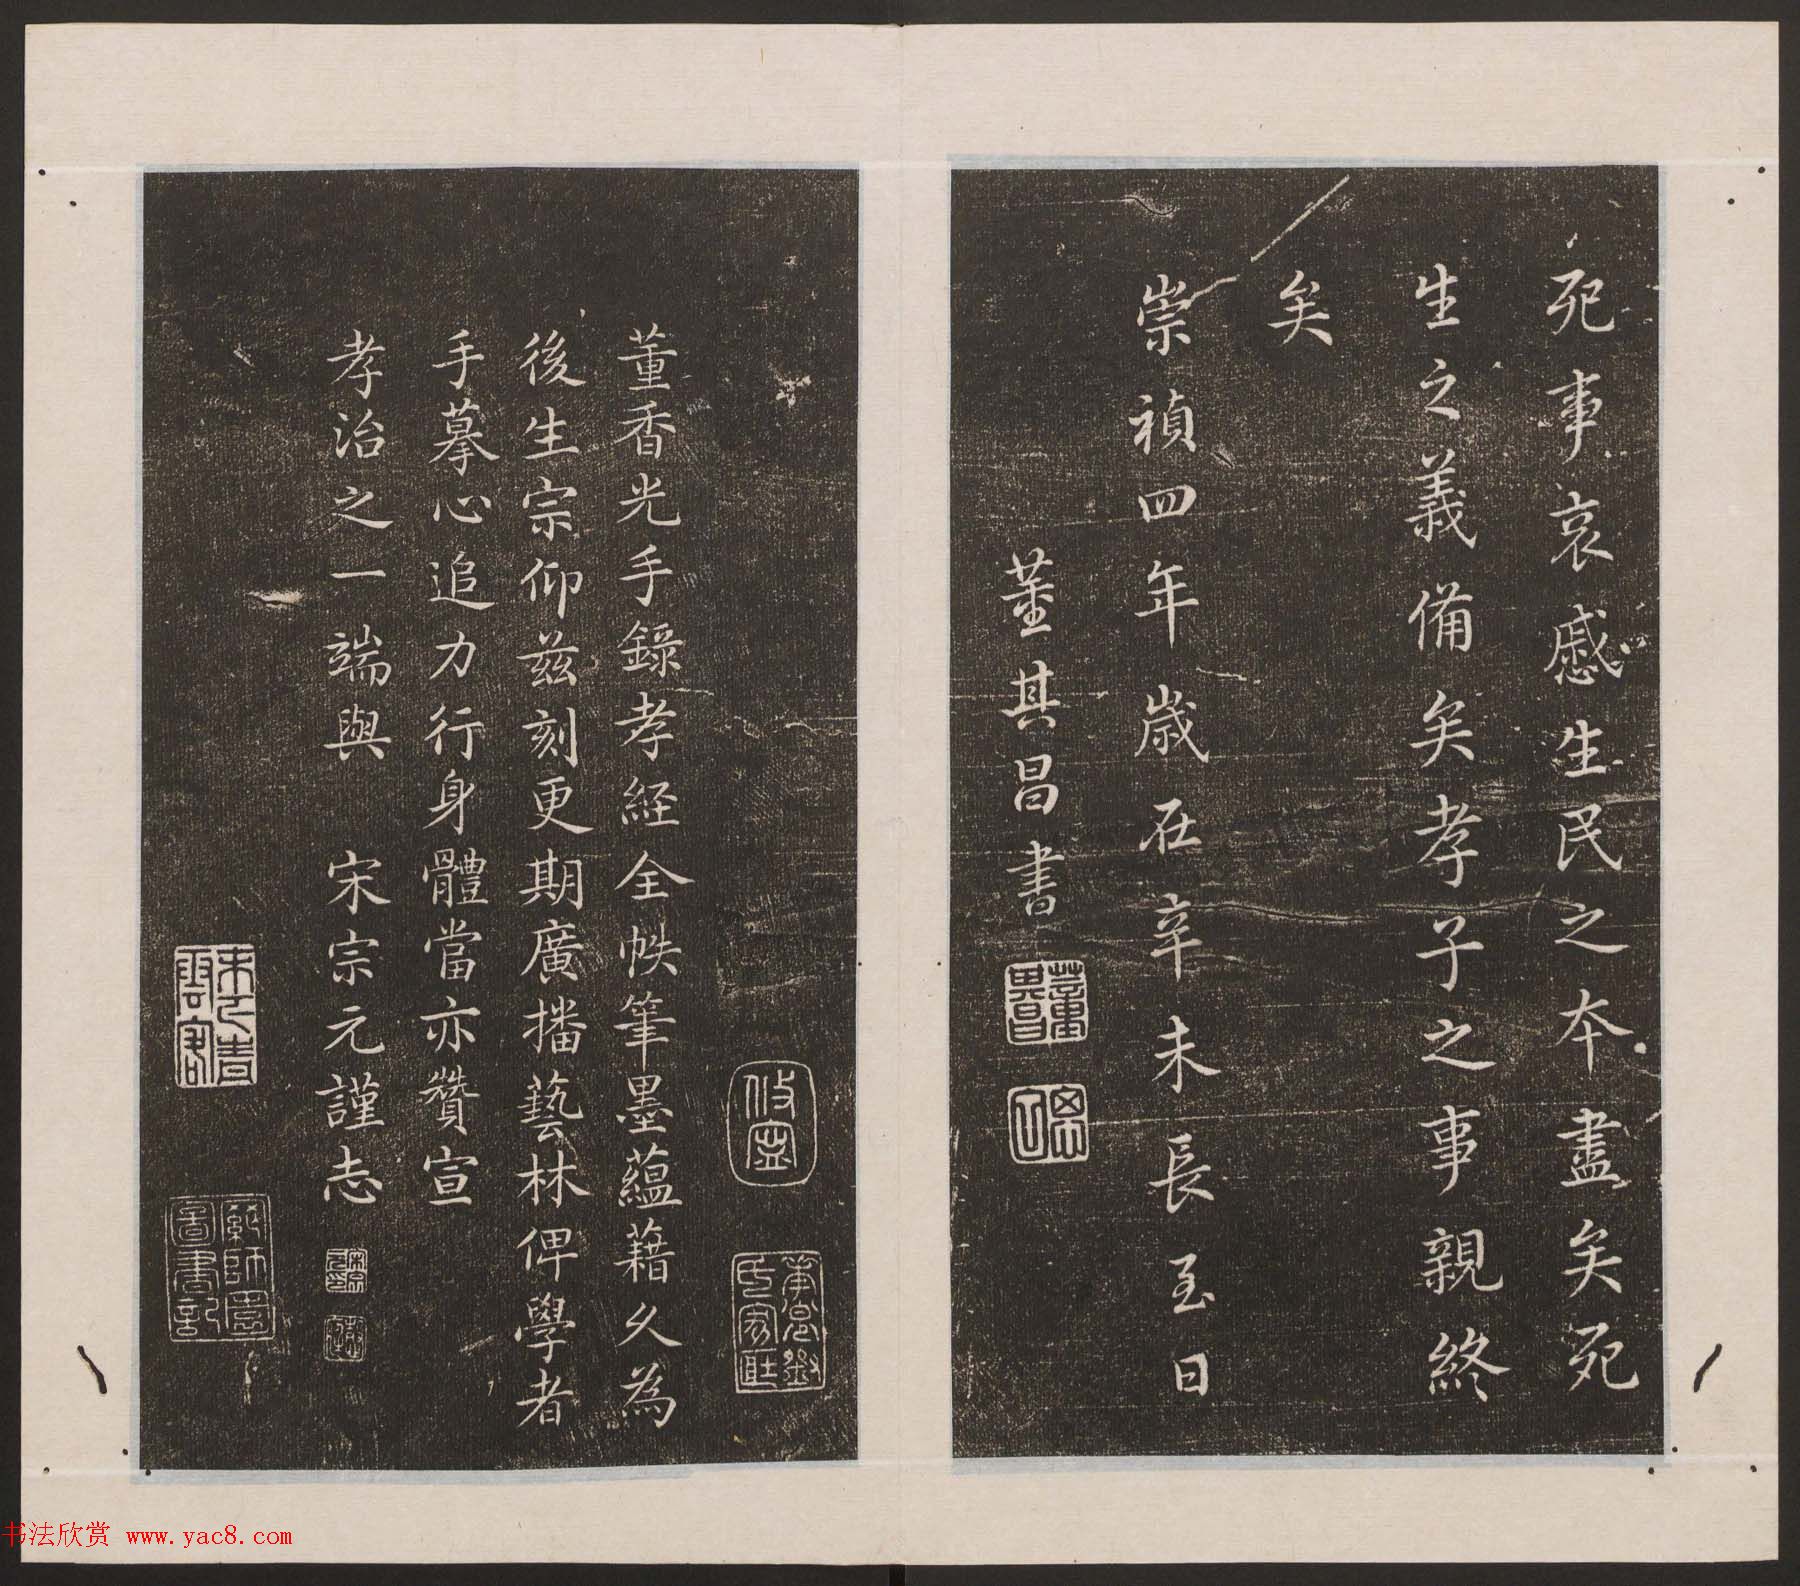 死事哀慼生民之本盡矣死
生之義備矣孝子之事親終
矣
崇禎四年歲在辛未長至日
董其昌書
董其昌
董香光手錄孝經全帙筆墨蘊藉久為
後生宗仰茲刻更期廣播藝林俾學者
手摹心追力行身體當亦贊宣
孝治之一端與 宋宗元謹志
網師園圖書記
书法欣赏 www.yac8.com